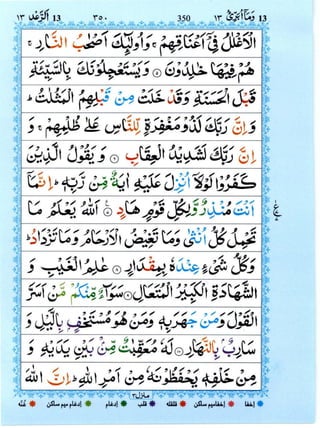 الرَّعْد ١٣ 13 ٣٥٠ 350 وَمَآ اُبَرِّئُ ١٣ 13
الْاَغْلٰلُ فِيْۤ اَعْنَاقِهِمْ ۚ وَاُولٰٓئِكَ اَصْحٰبُ النَّارِ ۚ
هُمْ فِيْهَا خٰلِدُوْنَ ۝ وَيَسْتَعْجِلُوْنَكَ بِالسَّيِّئَةِ
قَبْلَ الْحَسَنَةِ وَقَدْ خَلَتْ مِنْ قَبْلِهِمُ الْمَثُلٰتُ ؕ
وَاِنَّ رَبَّكَ لَذُوْ مَغْفِرَةٍ لِّلنَّاسِ عَلٰى ظُلْمِهِمْ ۚ وَ
اِنَّ رَبَّكَ لَشَدِيْدُ الْعِقَابِ ۝ وَيَقُوْلُ الَّذِيْنَ
كَفَرُوْا لَوْلَاۤ اُنْزِلَ عَلَيْهِ اٰيَةٌ مِّنْ رَّبِّهٖ ؕ اِنَّمَاۤ
اَنْتَ مُنْذِرٌ وَّلِكُلِّ قَوْمٍ هَادٍ ۝ اَللّٰهُ يَعْلَمُ مَا
تَحْمِلُ كُلُّ اُنْثٰى وَمَا تَغِيْضُ الْاَرْحَامُ وَمَا تَزْدَادُ ؕ
وَكُلُّ شَيْءٍ عِنْدَهٗ بِمِقْدَارٍ ۝ عٰلِمُ الْغَيْبِ وَ
الشَّهَادَةِ الْكَبِيْرُ الْمُتَعَالِ ۝ سَوَآءٌ مِّنْكُمْ مَّنْ اَسَرَّ
الْقَوْلَ وَمَنْ جَهَرَ بِهٖ وَمَنْ هُوَ مُسْتَخْفٍۭ بِالَّيْلِ وَ
سَارِبٌۢ بِالنَّهَارِ ۝ لَهٗ مُعَقِّبٰتٌ مِّنْۢ بَيْنِ يَدَيْهِ وَ
مِنْ خَلْفِهٖ يَحْفَظُوْنَهٗ مِنْ اَمْرِ اللّٰهِ ؕ اِنَّ اللّٰهَ
منزل ٣
اخفا اخفا میم ساکن قلقلہ قلب ادغام ادغام میم ساکن غنہ